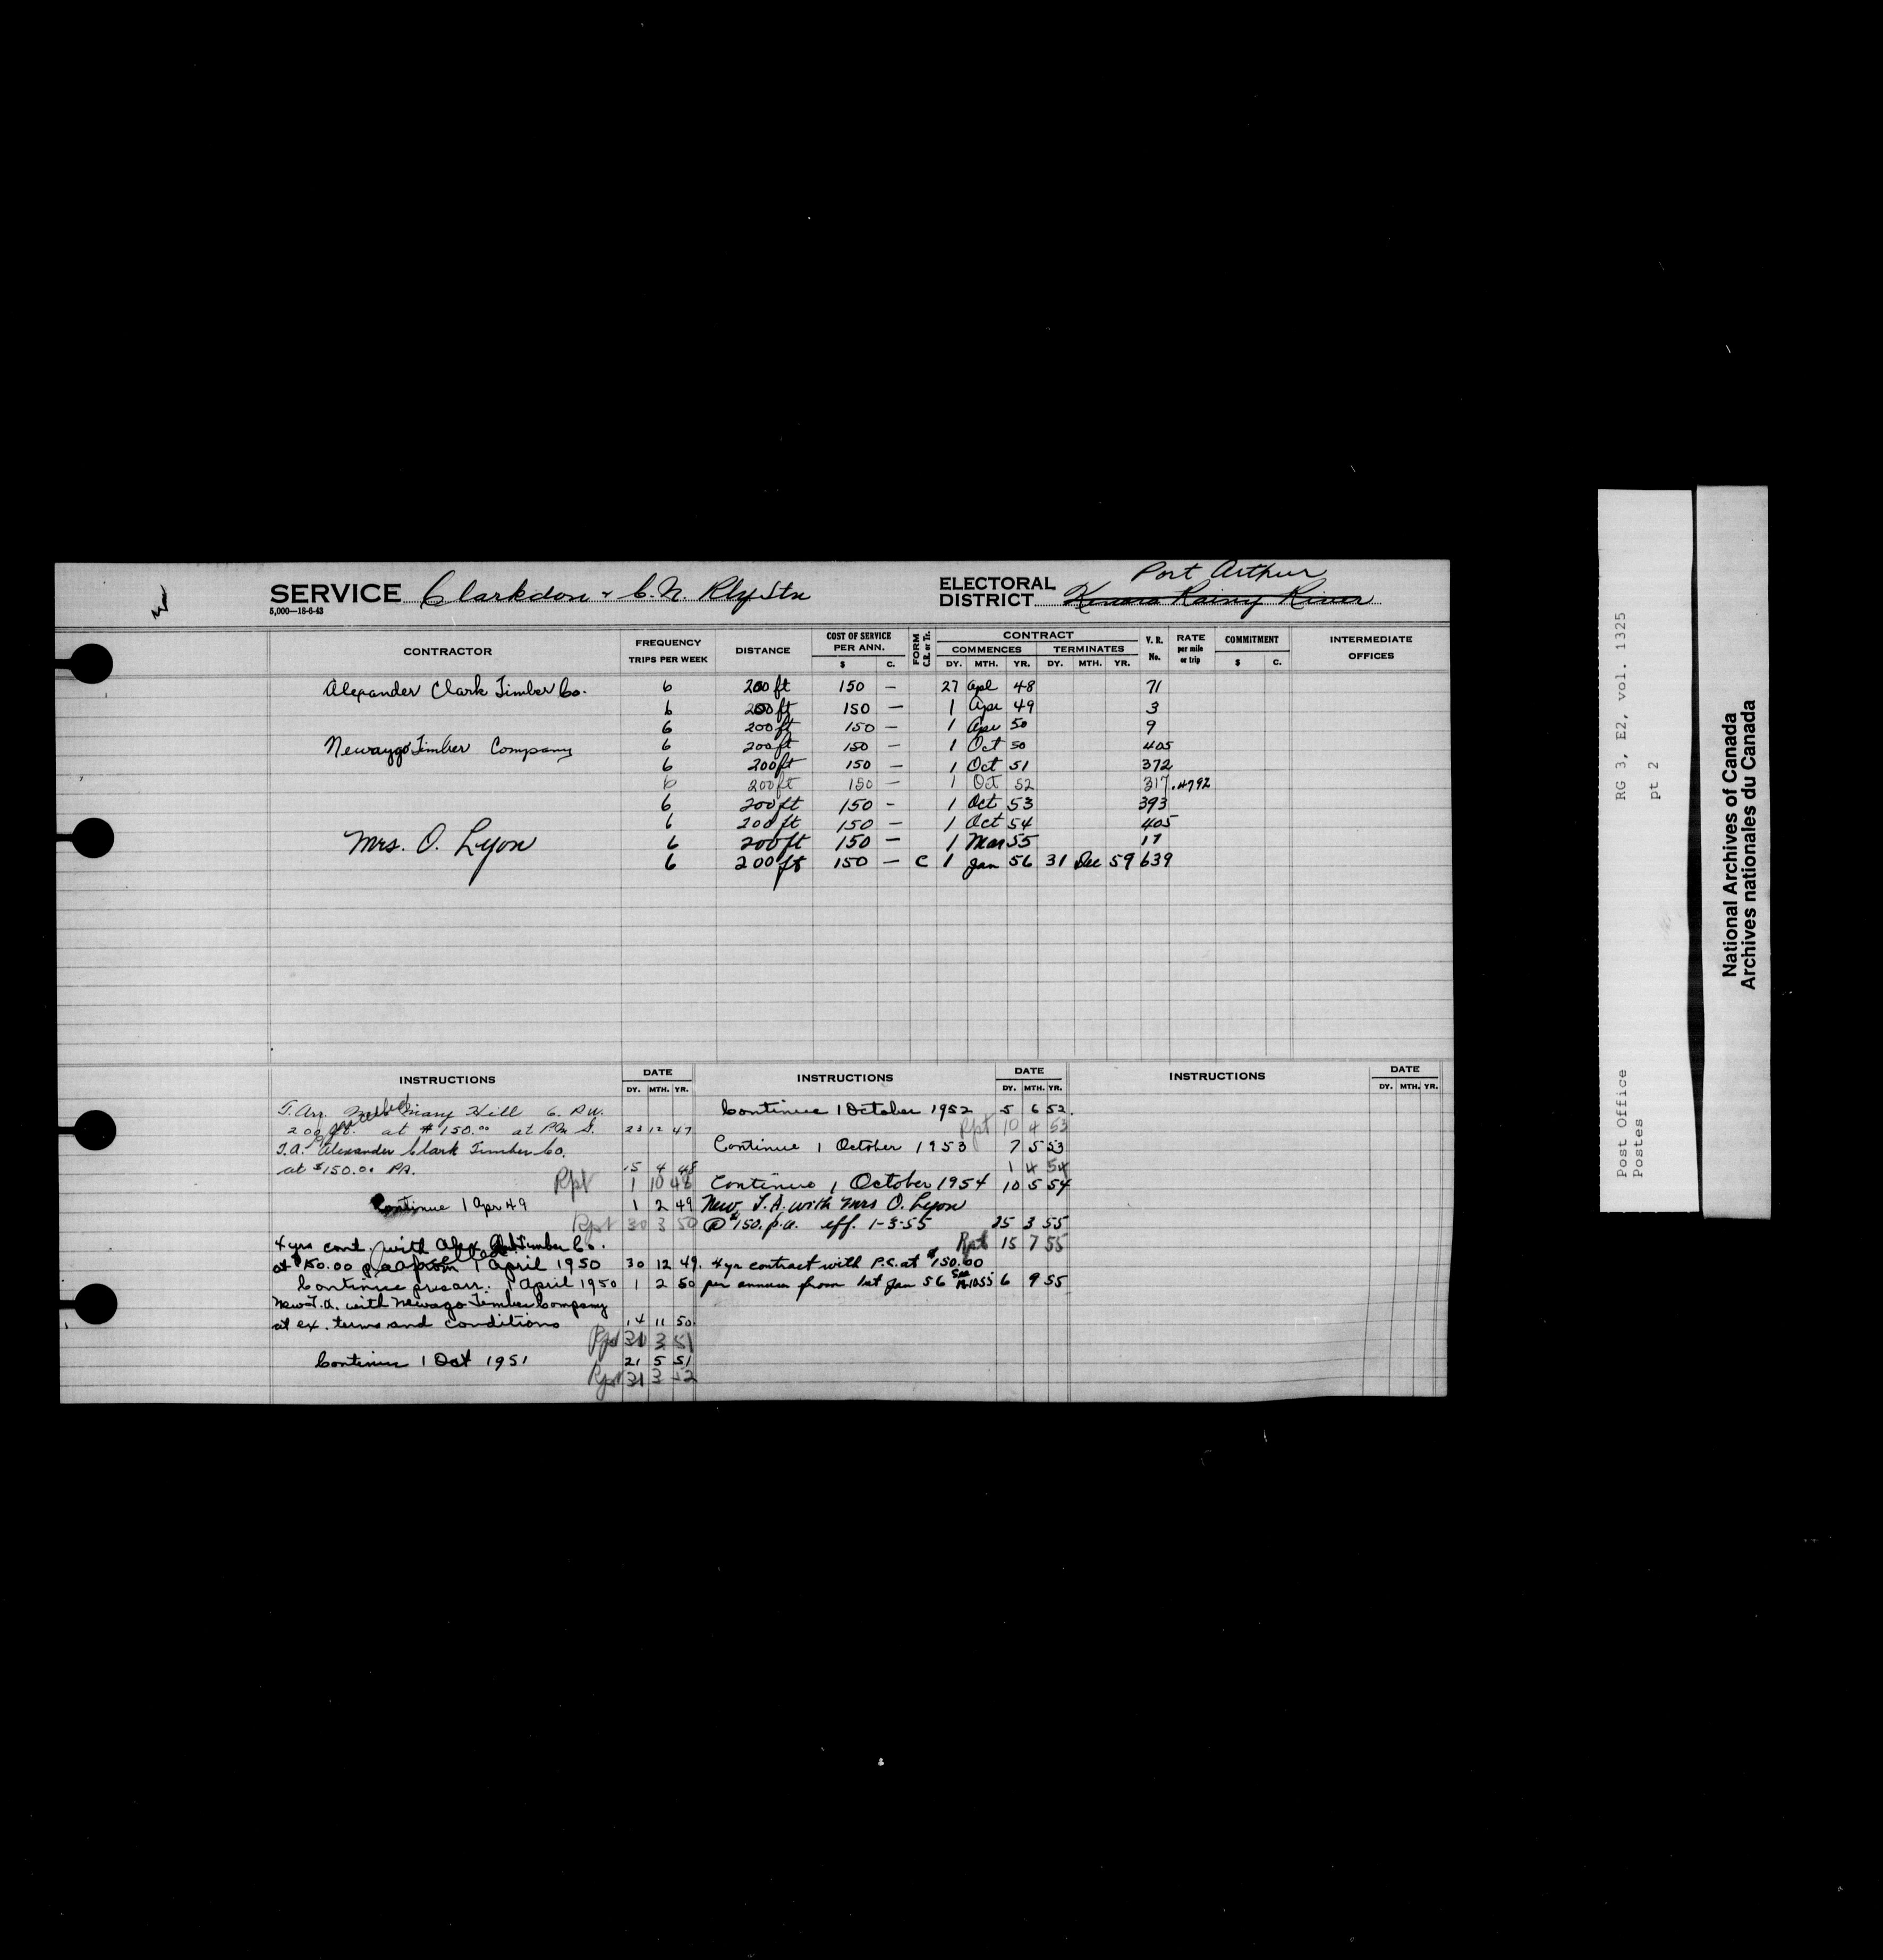 SERVICE Clarkdon & C.N. Rly Stn
5,000—18-6-43
ELECTORAL DISTRICT Port Arthur
Kenora Rainy River
CONTRACTOR FREQUENCY TRIPS PER WEEK DISTANCE COST OF SERVICE PER ANN. $ C. FORM C.R. or Tr. CONTRACT COMMENCES DY. MTH. YR. TERMINATES DY. MTH. YR. V. R. No. RATE per mile or trip COMMITMENT $ C. INTERMEDIATE OFFICES
Alexander Clark Timber Co. 6 200 ft 150 — 27 Apl 48 71
6 200 ft 150 — 1 Apr 49 3
6 200 ft 150 — 1 Apr 50 9
Newaygo Timber Company 6 200 ft 150 — 1 Oct 50 405
6 200 ft 150 — 1 Oct 51 372
6 200 ft 150 — 1 Oct 52 317 .4792
6 200 ft 150 - 1 Oct 53 393
6 200 ft 150 — 1 Oct 54 405
Mrs. O. Lyon 6 200 ft 150 — 1 Mar 55 17
6 200 ft 150 — C 1 Jan 56 31 Dec 59 639
INSTRUCTIONS DATE DY. MTH. YR.
T. Arr. Mary Hill 6. P.W.
200 at $150.00 at 23 12 47
T.A. Alexander Clark Timber Co.
at $150.00 PA. 15 4 48
Rpt 1 10 48
Continue 1 Apr 49 1 2 49
Rpt 30 3 50
4 yrs cont. with Alex Timber Co.
at $150.00 p.a. from 1 April 1950 30 12 49.
Continue pres arr. 1 April 1950 1 2 50
New T.A. with Newago Timber Company
at ex. terms and conditions 14 11 50
Rpt 31 3 51
Continue 1 Oct 1951 21 5 51
Rpt 31 3 52
INSTRUCTIONS DATE DY. MTH. YR.
Continue 1 October 1952 5 6 52.
Rpt 10 4 53
Continue 1 October 1953 7 5 53
1 4 54
Continue 1 October 1954 10 5 54
New T.A. with Mrs O. Lyon
@ $150. p.a. eff. 1-3-55 25 3 55
Rpt 15 7 55
4 yr contract with P.C. at $150.00
per annum from 1st Jan 56 6 9 55
INSTRUCTIONS DATE DY. MTH. YR.
RG 3, E2, vol. 1325
pt 2
Post Office
Postes
National Archives of Canada
Archives nationales du Canada